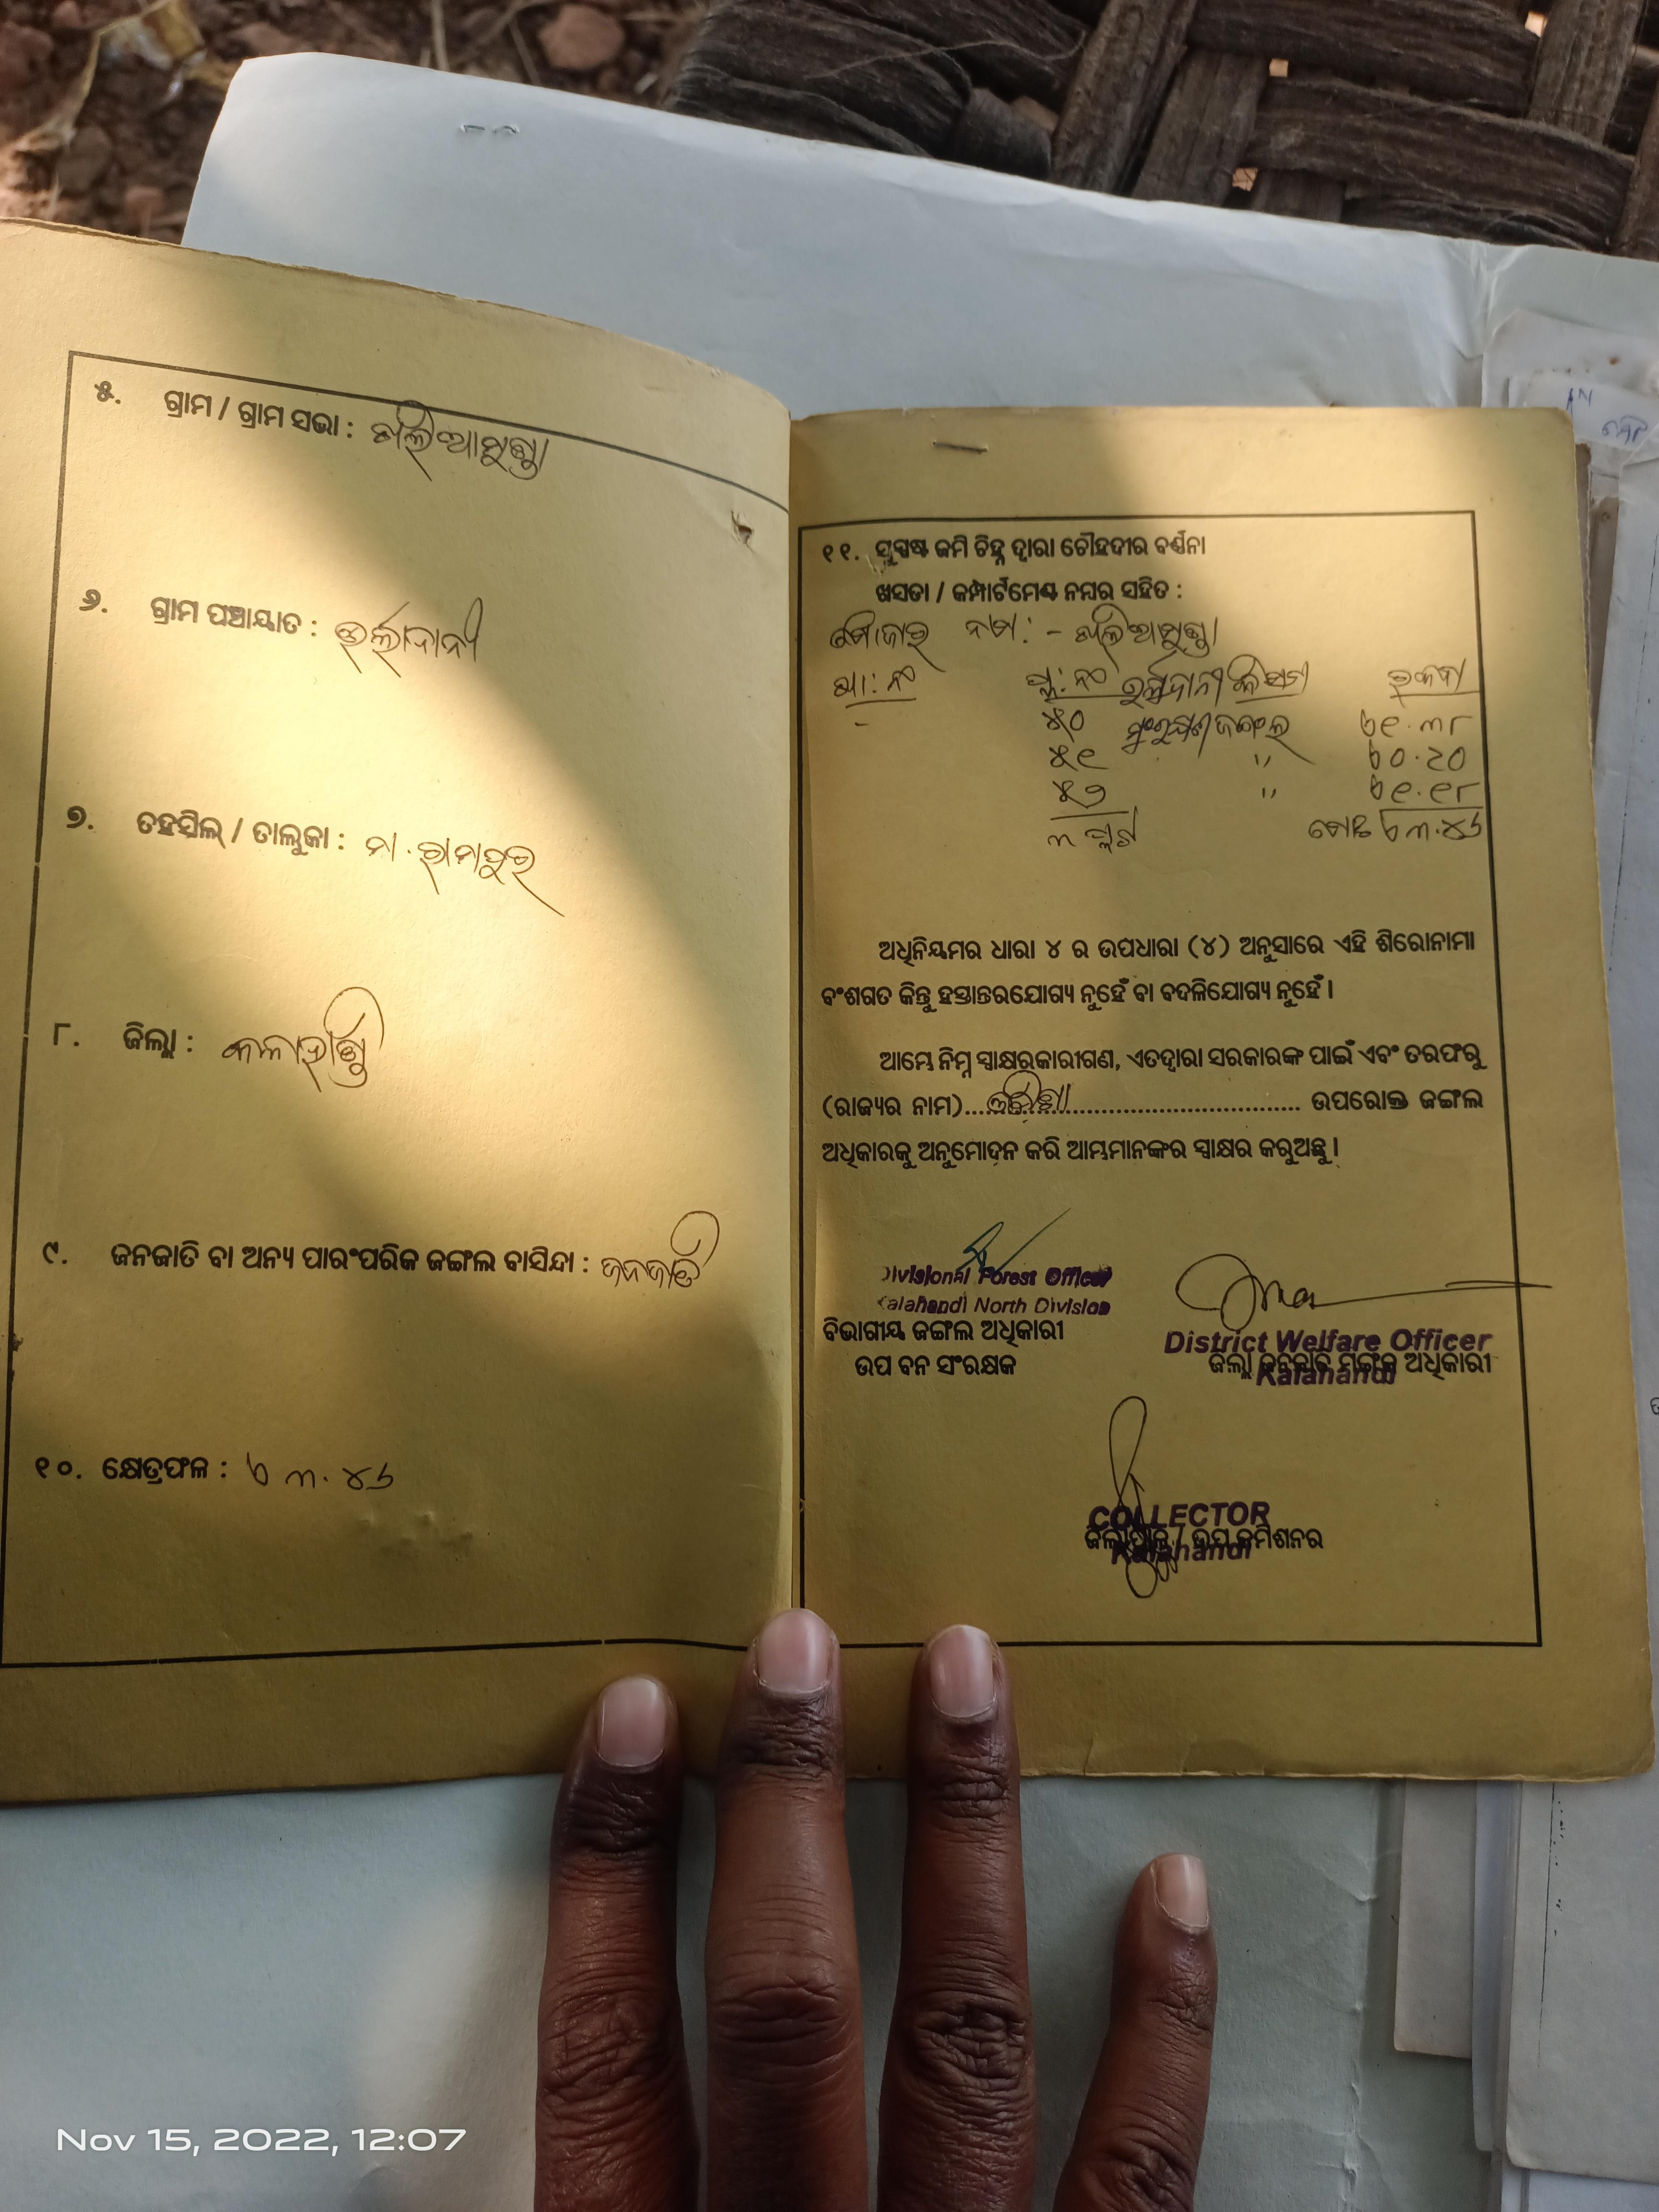 ୫. ଗ୍ରାମ / ଗ୍ରାମ ସଭା : ଖଲିଆମୁଣ୍ଡା
୬. ଗ୍ରାମ ପଞ୍ଚାୟାତ : ଉର୍ଲାଦାନୀ
୭. ତହସିଲ୍ / ତାଲୁକା : ମା. ରାମପୁର
୮. ଜିଲ୍ଲା : କଳାହାଣ୍ଡି
୯. ଜନଜାତି ବା ଅନ୍ୟ ପାରଂପରିକ ଜଙ୍ଗଲ ବାସିନ୍ଦା : ଜନଜାତି
୧୦. କ୍ଷେତ୍ରଫଳ : ଏ ୩.୪୬
୧୧. ସୁସ୍ପଷ୍ଟ ଜମି ଚିହ୍ନ ଦ୍ୱାରା ଚୌହଦୀର ବର୍ଣ୍ଣନା
ଖସଡା / କମ୍ପାର୍ଟମେଣ୍ଟ ନମ୍ବର ସହିତ :
ମୌଜାର ନାମ :- ଖଲିଆମୁଣ୍ଡା
ଖା: ନଂ ପ୍ଲ: ନଂ କିସମ ରକବା
- ୫୦ ଜଙ୍ଗଲ ଏ ୧.୩୮
୫୧ " ଏ ୦.୨୦
୫୨ " ଏ ୧.୧୮
୩ ପ୍ଲଟ ମୋଟ ଏ ୩.୪୬
ଅଧିନିୟମର ଧାରା ୪ ର ଉପଧାରା (୪) ଅନୁସାରେ ଏହି ଶିରୋନାମା
ବଂଶଗତ କିନ୍ତୁ ହସ୍ତାନ୍ତରଯୋଗ୍ୟ ନୁହେଁ ବା ବଦଳିଯୋଗ୍ୟ ନୁହେଁ ।
ଆମ୍ଭେ ନିମ୍ନ ସ୍ୱାକ୍ଷରକାରୀଗଣ, ଏତଦ୍ୱାରା ସରକାରଙ୍କ ପାଇଁ ଏବଂ ତରଫରୁ
(ରାଜ୍ୟର ନାମ)...ଓଡ଼ିଶା... ଉପରୋକ୍ତ ଜଙ୍ଗଲ
ଅଧିକାରକୁ ଅନୁମୋଦନ କରି ଆମ୍ଭମାନଙ୍କର ସ୍ୱାକ୍ଷର କରୁଅଛୁ ।
Divisional Forest Officer
Kalahandi North Division
ବିଭାଗୀୟ ଜଙ୍ଗଲ ଅଧିକାରୀ
ଉପ ବନ ସଂରକ୍ଷକ
District Welfare Officer
ଜିଲ୍ଲା ଜନଜାତି ମଙ୍ଗଳ ଅଧିକାରୀ
Kalahandi
COLLECTOR
ଜିଲ୍ଲାପାଳ / ଉପ କମିଶନର
Kalahandi
Nov 15, 2022, 12:07